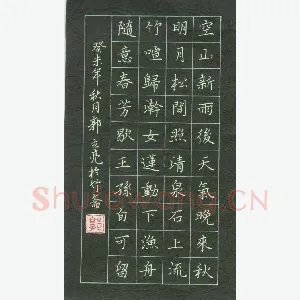 空山新雨後天氣晚來秋
明月松間照清泉石上流
竹喧歸澣女蓮動下漁舟
隨意春芳歇王孫自可留
癸未年秋月郭立亮於竹斋
Shufawang.CN